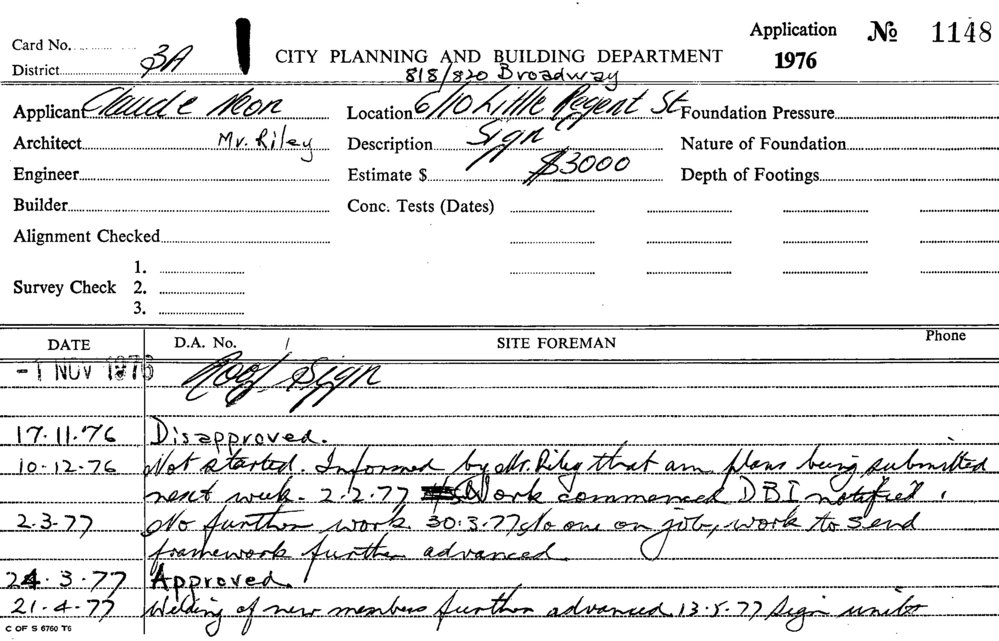 Card No.
District 3A
CITY PLANNING AND BUILDING DEPARTMENT
Application No 1148
1976
818/820 Broadway
Applicant Claude Neon
Location 6/10 Little Regent St
Foundation Pressure
Architect Mr. Riley
Description Sign
Nature of Foundation
Engineer
Estimate $ $3000
Depth of Footings
Builder
Conc. Tests (Dates)
Alignment Checked
Survey Check
1.
2.
3.
DATE D.A. No. SITE FOREMAN Phone
-1 NOV 1976 Roof Sign
17.11.76 Disapproved.
10.12.76 Not started. Informed by Mr. Riley that am plans being submitted
next week. 2.2.77 Work commenced DBI notified.
2.3.77 No further work. 30.3.77 No one on job, work to
framework further advanced.
24.3.77 Approved.
21.4.77 Welding of new members further advanced 13.5.77 Sign units
C OF S 6760 T6